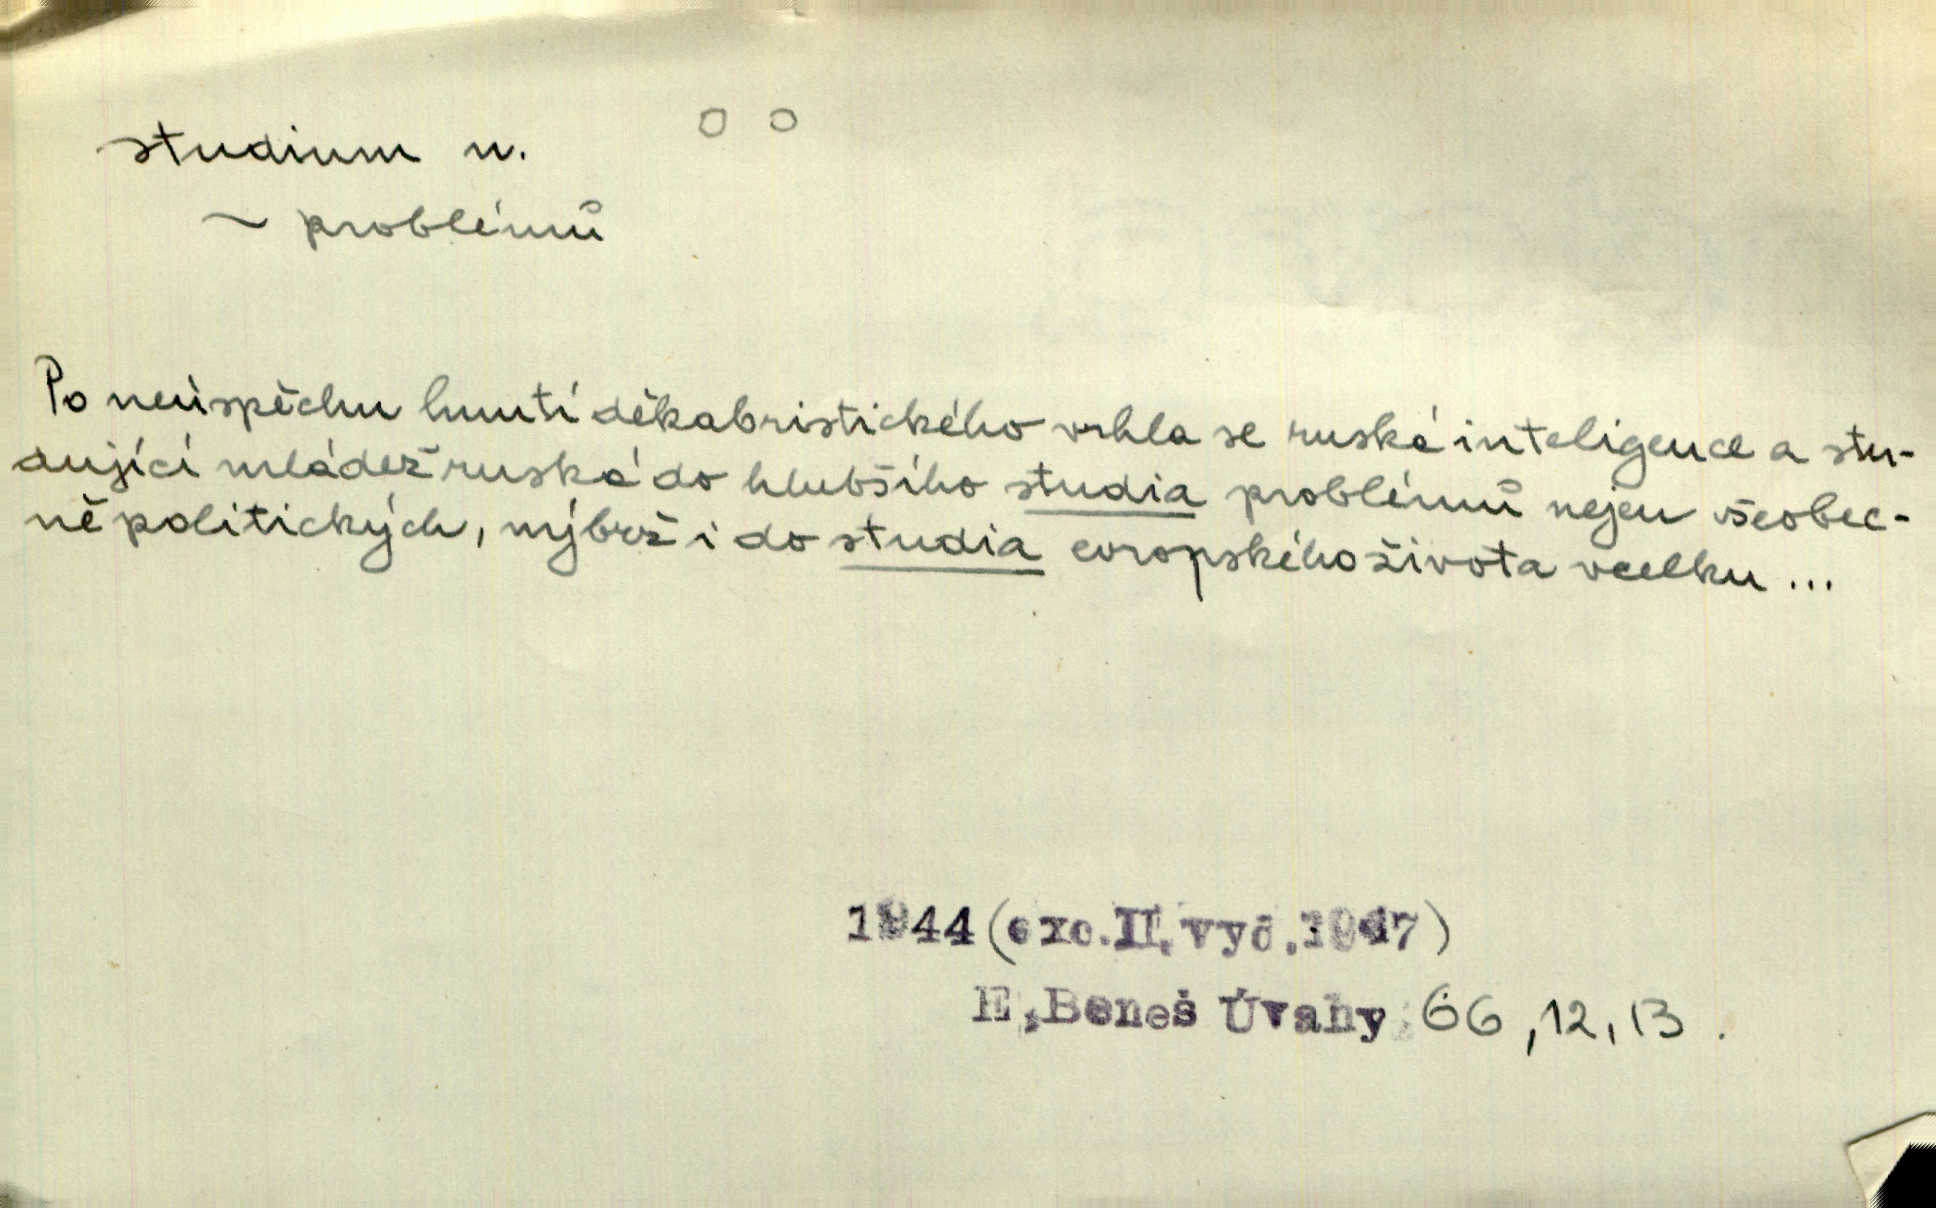 studium n. o o
~ problémů
Po neúspěchu hnutí děkabristického vrhla se ruská inteligence a stu-
dující mládež ruská do hlubšího studia problémů nejen všeobec-
ně politických, nýbrž i do studia evropského života vcelku ...
1944 (exc. II. vyd. 1947)
E. Beneš Úvahy 66, 12, 13.